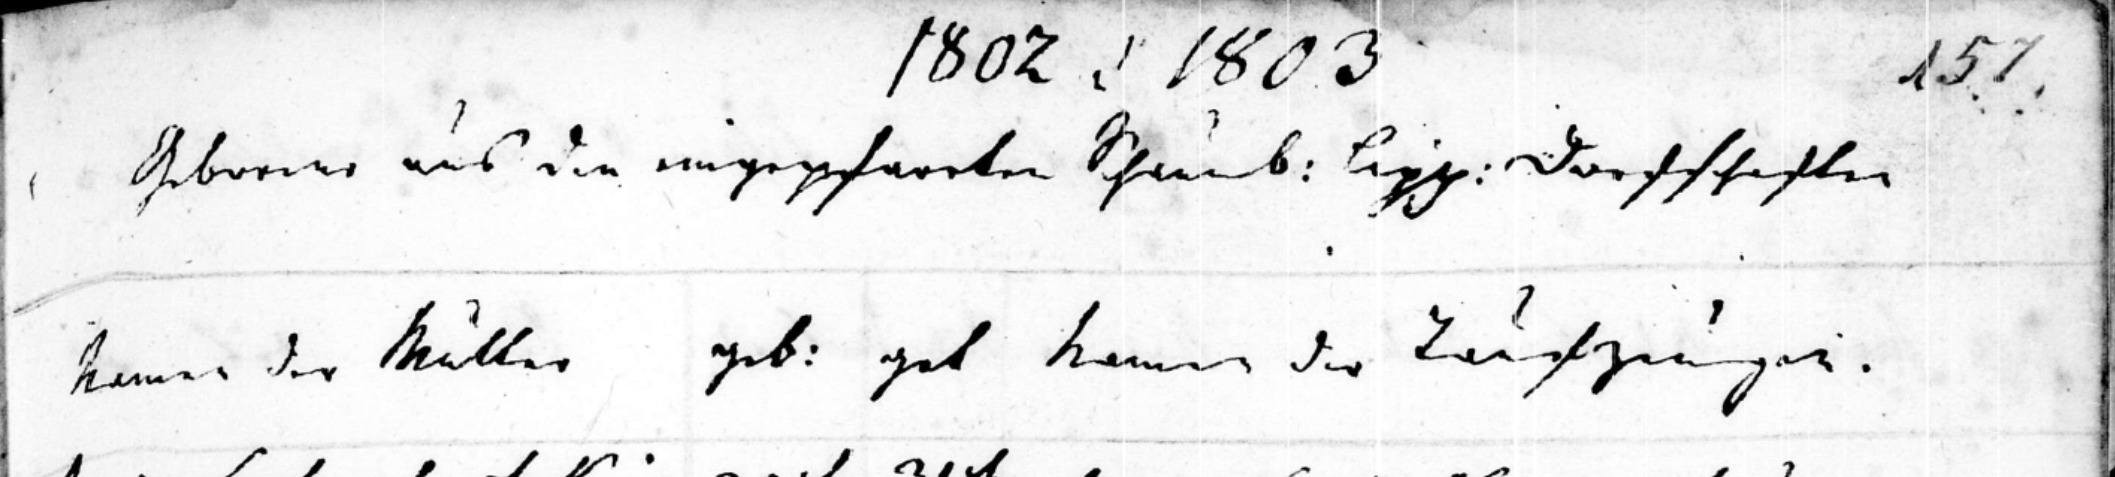 1802 & 1803
157.
Geborene aus den eingepfarrten Schaumb: Lipp: Dorfschaften
Namen der Mutter geb: get Namen der Taufzeugen.